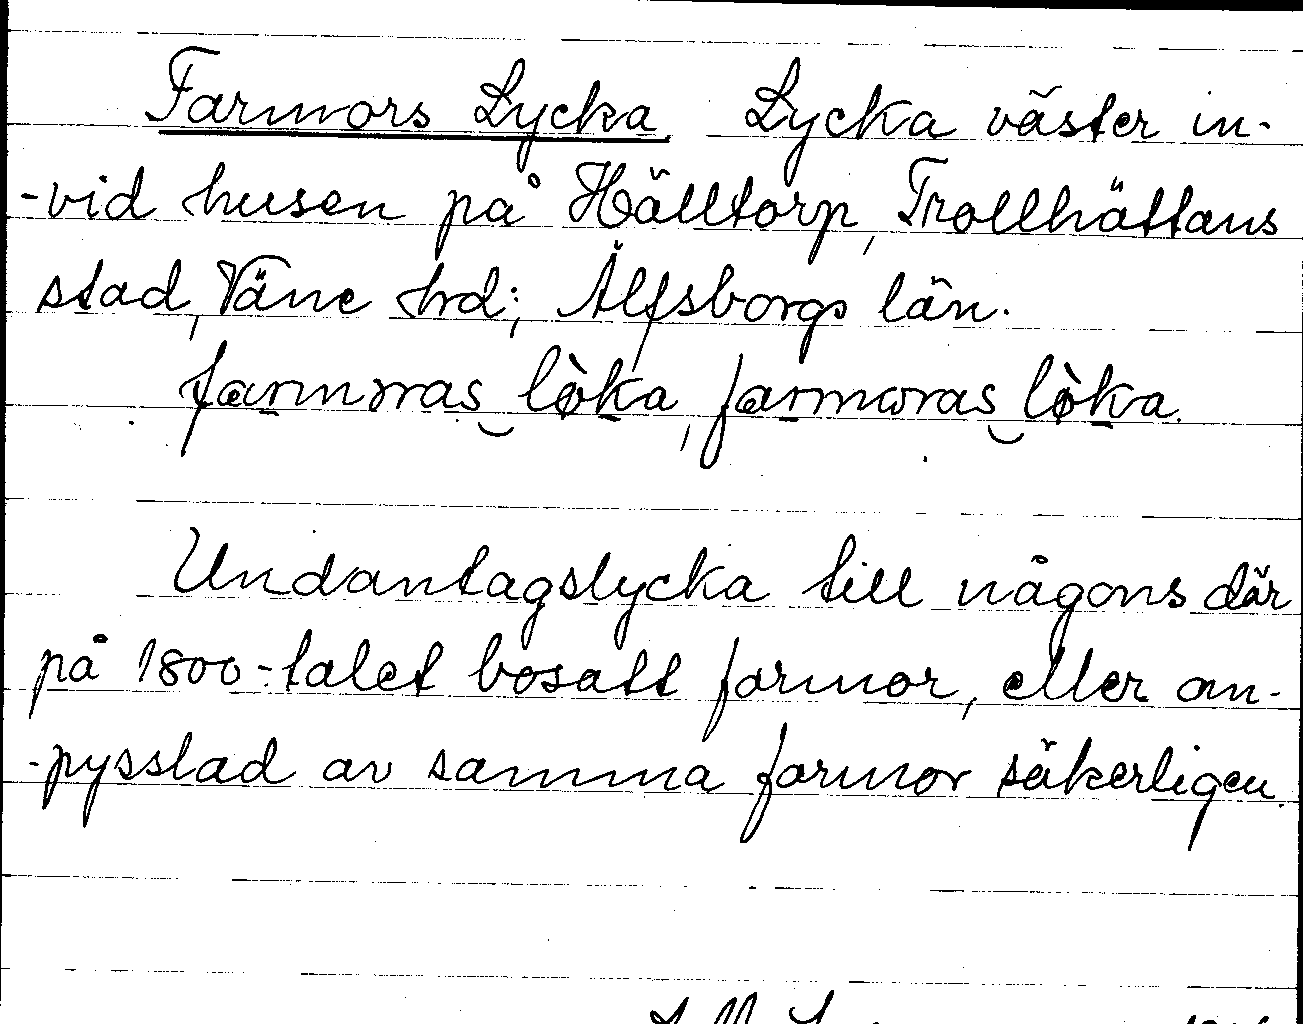 Farmors Lycka Lycka väster in-
-vid husen på Hälltorp, Trollhättans
stad, Väne hd; Älfsborgs län.
farmoras löka, farmoras löka.
Undantagslycka till någons där
på 1800-talet bosatt farmor, eller om-
-pysslad av samma farmor säkerligen.